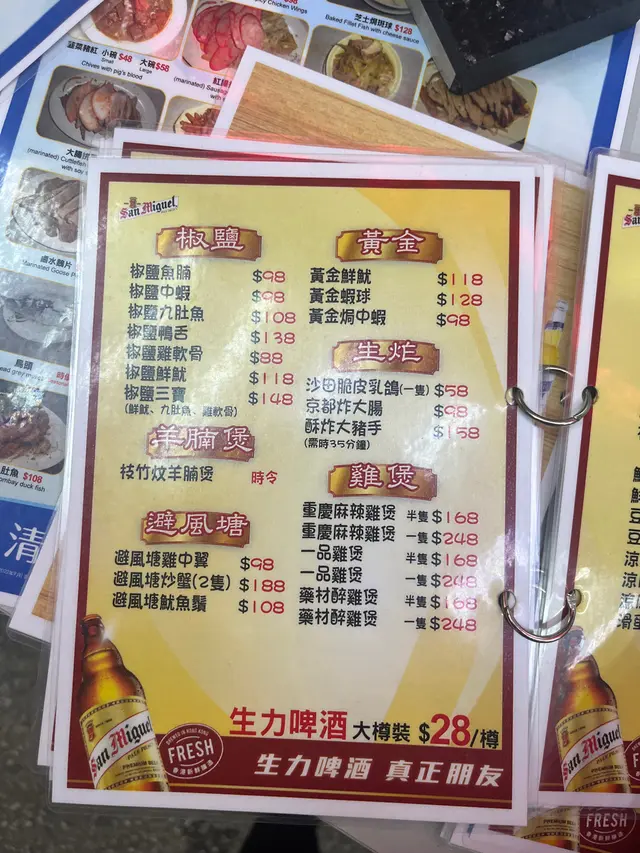 Spicy Chicken Wings
$98
Baked Fillet Fish with cheese sauce
芝士焗斑球 $128
韮菜豬紅 小碗$48 大碗$58
Small Large
Chives with pig's blood
(marinated)
(marinated) Cuttlefish
鹵水鵝片
Marinated Goose
烏頭
肚魚 $108
bombay duck fish
清
San Miguel
椒鹽
椒鹽魚腩 $98
椒鹽中蝦 $98
椒鹽九肚魚 $108
椒鹽鴨舌 $138
椒鹽雞軟骨 $88
椒鹽鮮魷 $118
椒鹽三寶 $148
(鮮魷、九肚魚、雞軟骨)
羊腩煲
枝竹炆羊腩煲 時令
避風塘
避風塘雞中翼 $98
避風塘炒蟹(2隻) $188
避風塘魷魚鬚 $108
黃金
黃金鮮魷 $118
黃金蝦球 $128
黃金焗中蝦 $98
生炸
沙田脆皮乳鴿(一隻) $58
京都炸大腸 $98
酥炸大豬手 $158
(需時35分鐘)
雞煲
重慶麻辣雞煲 半隻 $168
重慶麻辣雞煲 一隻 $248
一品雞煲 半隻 $168
一品雞煲 一隻 $248
藥材醉雞煲 半隻 $168
藥材醉雞煲 一隻 $248
生力啤酒 大樽裝 $28/樽
生力啤酒 真正朋友
BREWED IN HONG KONG
FRESH
香港新鮮釀造
San Miguel
PALE PILSEN
PREMIUM BEER
San Miguel
FRESH
PREMIUM BEER
FRESH